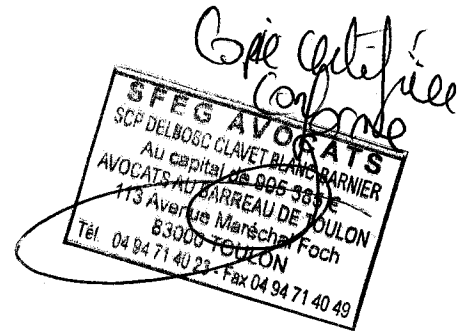 Copie certifiée
Conforme
SFEG AVOCATS
SCP DELBOSC CLAVET BLANC BARNIER
Au capital de 995 385 €
AVOCATS AU BARREAU DE TOULON
113 Avenue Maréchal Foch
83000 TOULON
Tél. 04 94 71 40 23 - Fax 04 94 71 40 49